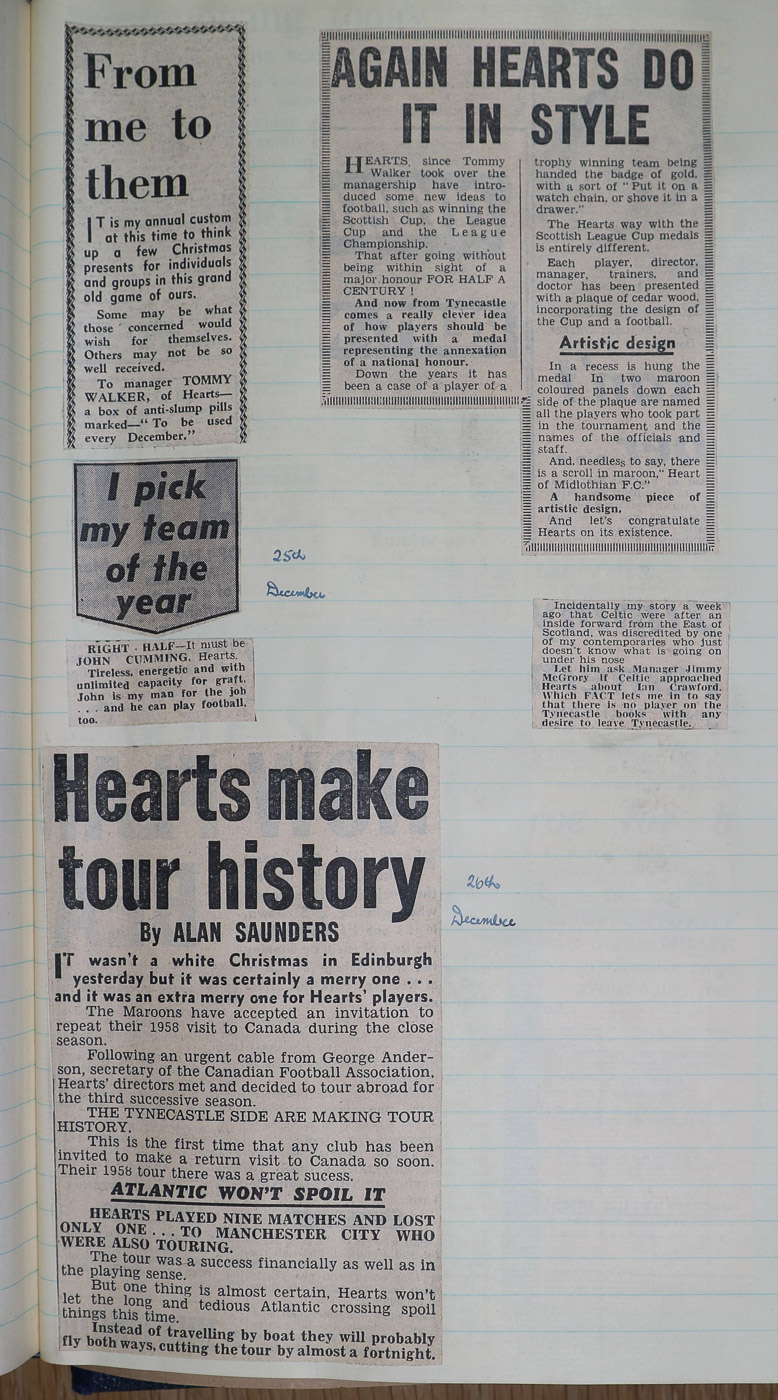 From
me to
them
IT is my annual custom
at this time to think
up a few Christmas
presents for individuals
and groups in this grand
old game of ours.
Some may be what
those concerned would
wish for themselves.
Others may not be so
well received.
To manager TOMMY
WALKER, of Hearts—
a box of anti-slump pills
marked—“To be used
every December.”
I pick
my team
of the
year
RIGHT-HALF—It must be
JOHN CUMMING, Hearts.
Tireless, energetic and with
unlimited capacity for graft.
John is my man for the job
. . . and he can play football,
too.
25th
December
AGAIN HEARTS DO
IT IN STYLE
HEARTS, since Tommy
Walker took over the
managership have intro-
duced some new ideas to
football, such as winning the
Scottish Cup, the League
Cup and the League
Championship.
That after going without
being within sight of a
major honour FOR HALF A
CENTURY !
And now from Tynecastle
comes a really clever idea
of how players should be
presented with a medal
representing the annexation
of a national honour.
Down the years it has
been a case of a player of a
trophy winning team being
handed the badge of gold,
with a sort of “Put it on a
watch chain, or shove it in a
drawer.”
The Hearts way with the
Scottish League Cup medals
is entirely different.
Each player, director,
manager, trainers, and
doctor has been presented
with a plaque of cedar wood,
incorporating the design of
the Cup and a football.
Artistic design
In a recess is hung the
medal In two maroon
coloured panels down each
side of the plaque are named
all the players who took part
in the tournament and the
names of the officials and
staff.
And, needless to say, there
is a scroll in maroon,“Heart
of Midlothian F.C.”
A handsome piece of
artistic design.
And let's congratulate
Hearts on its existence.
Incidentally my story a week
ago that Celtic were after an
inside forward from the East of
Scotland, was discredited by one
of my contemporaries who just
doesn't know what is going on
under his nose
Let him ask Manager Jimmy
McGrory if Celtic approached
Hearts about Ian Crawford.
Which FACT lets me in to say
that there is no player on the
Tynecastle books with any
desire to leave Tynecastle.
Hearts make
tour history
By ALAN SAUNDERS
IT wasn't a white Christmas in Edinburgh
yesterday but it was certainly a merry one . . .
and it was an extra merry one for Hearts' players.
The Maroons have accepted an invitation to
repeat their 1958 visit to Canada during the close
season.
Following an urgent cable from George Ander-
son, secretary of the Canadian Football Association,
Hearts' directors met and decided to tour abroad for
the third successive season.
THE TYNECASTLE SIDE ARE MAKING TOUR
HISTORY.
This is the first time that any club has been
invited to make a return visit to Canada so soon.
Their 1958 tour there was a great sucess.
ATLANTIC WON'T SPOIL IT
HEARTS PLAYED NINE MATCHES AND LOST
ONLY ONE . . . TO MANCHESTER CITY WHO
WERE ALSO TOURING.
The tour was a success financially as well as in
the playing sense.
But one thing is almost certain, Hearts won't
let the long and tedious Atlantic crossing spoil
things this time.
Instead of travelling by boat they will probably
fly both ways, cutting the tour by almost a fortnight.
26th
December